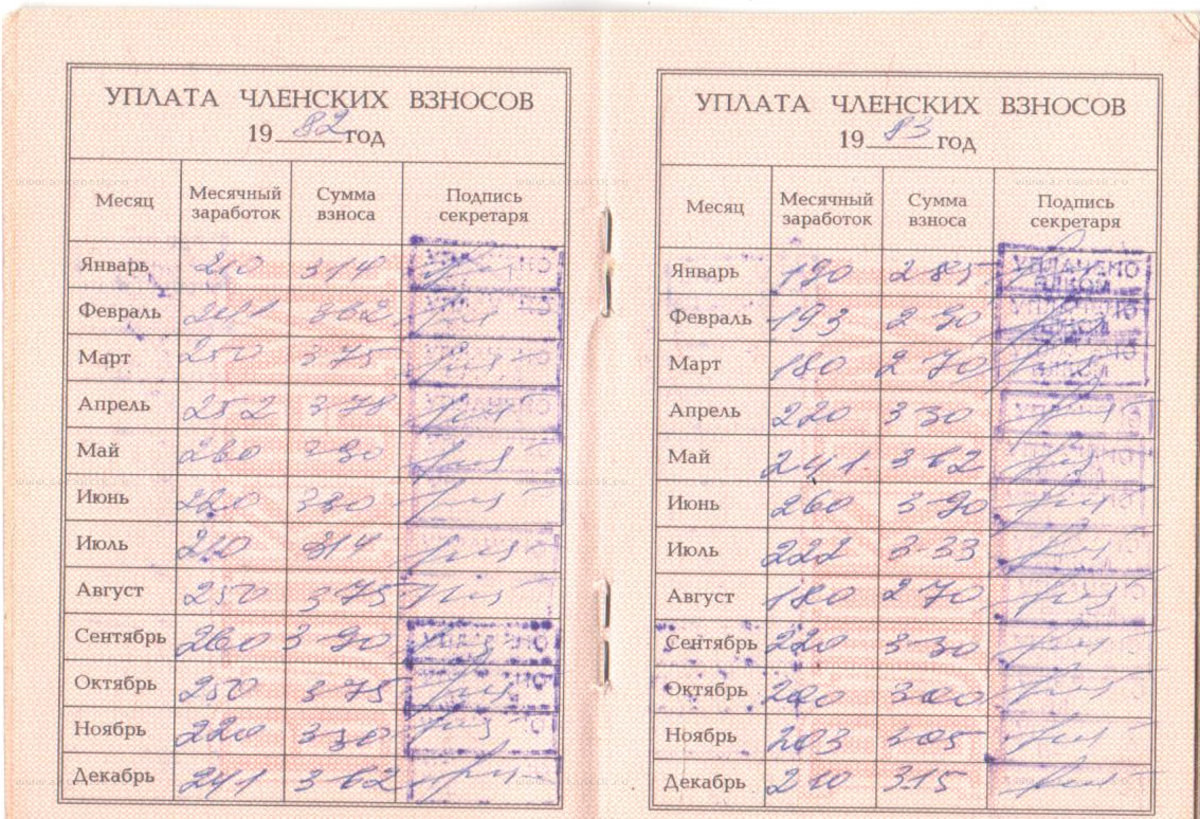 УПЛАТА ЧЛЕНСКИХ ВЗНОСОВ
19 82 год
Месяц Месячный заработок Сумма взноса Подпись секретаря
Январь 210 3 14
Февраль 241 3 62
Март 250 3 75
Апрель 252 3 78
Май 260 3 90
Июнь 3 80
Июль 210 3 14
Август 250 3 75
Сентябрь 260 3 90
Октябрь 250 3 75
Ноябрь 220 3 30
Декабрь 241 3 62
УПЛАТА ЧЛЕНСКИХ ВЗНОСОВ
19 83 год
Месяц Месячный заработок Сумма взноса Подпись секретаря
Январь 190 2 85 УПЛАЧЕНО ВЛКСМ
Февраль 193 2 90 УПЛАЧЕНО ВЛКСМ
Март 180 2 70 ВЛКСМ
Апрель 220 3 30
Май 241 3 62
Июнь 260 3 90
Июль 222 3-33
Август 180 2 70
Сентябрь 220 3-30
Октябрь 200 3 00
Ноябрь 203 3 05
Декабрь 210 3 15